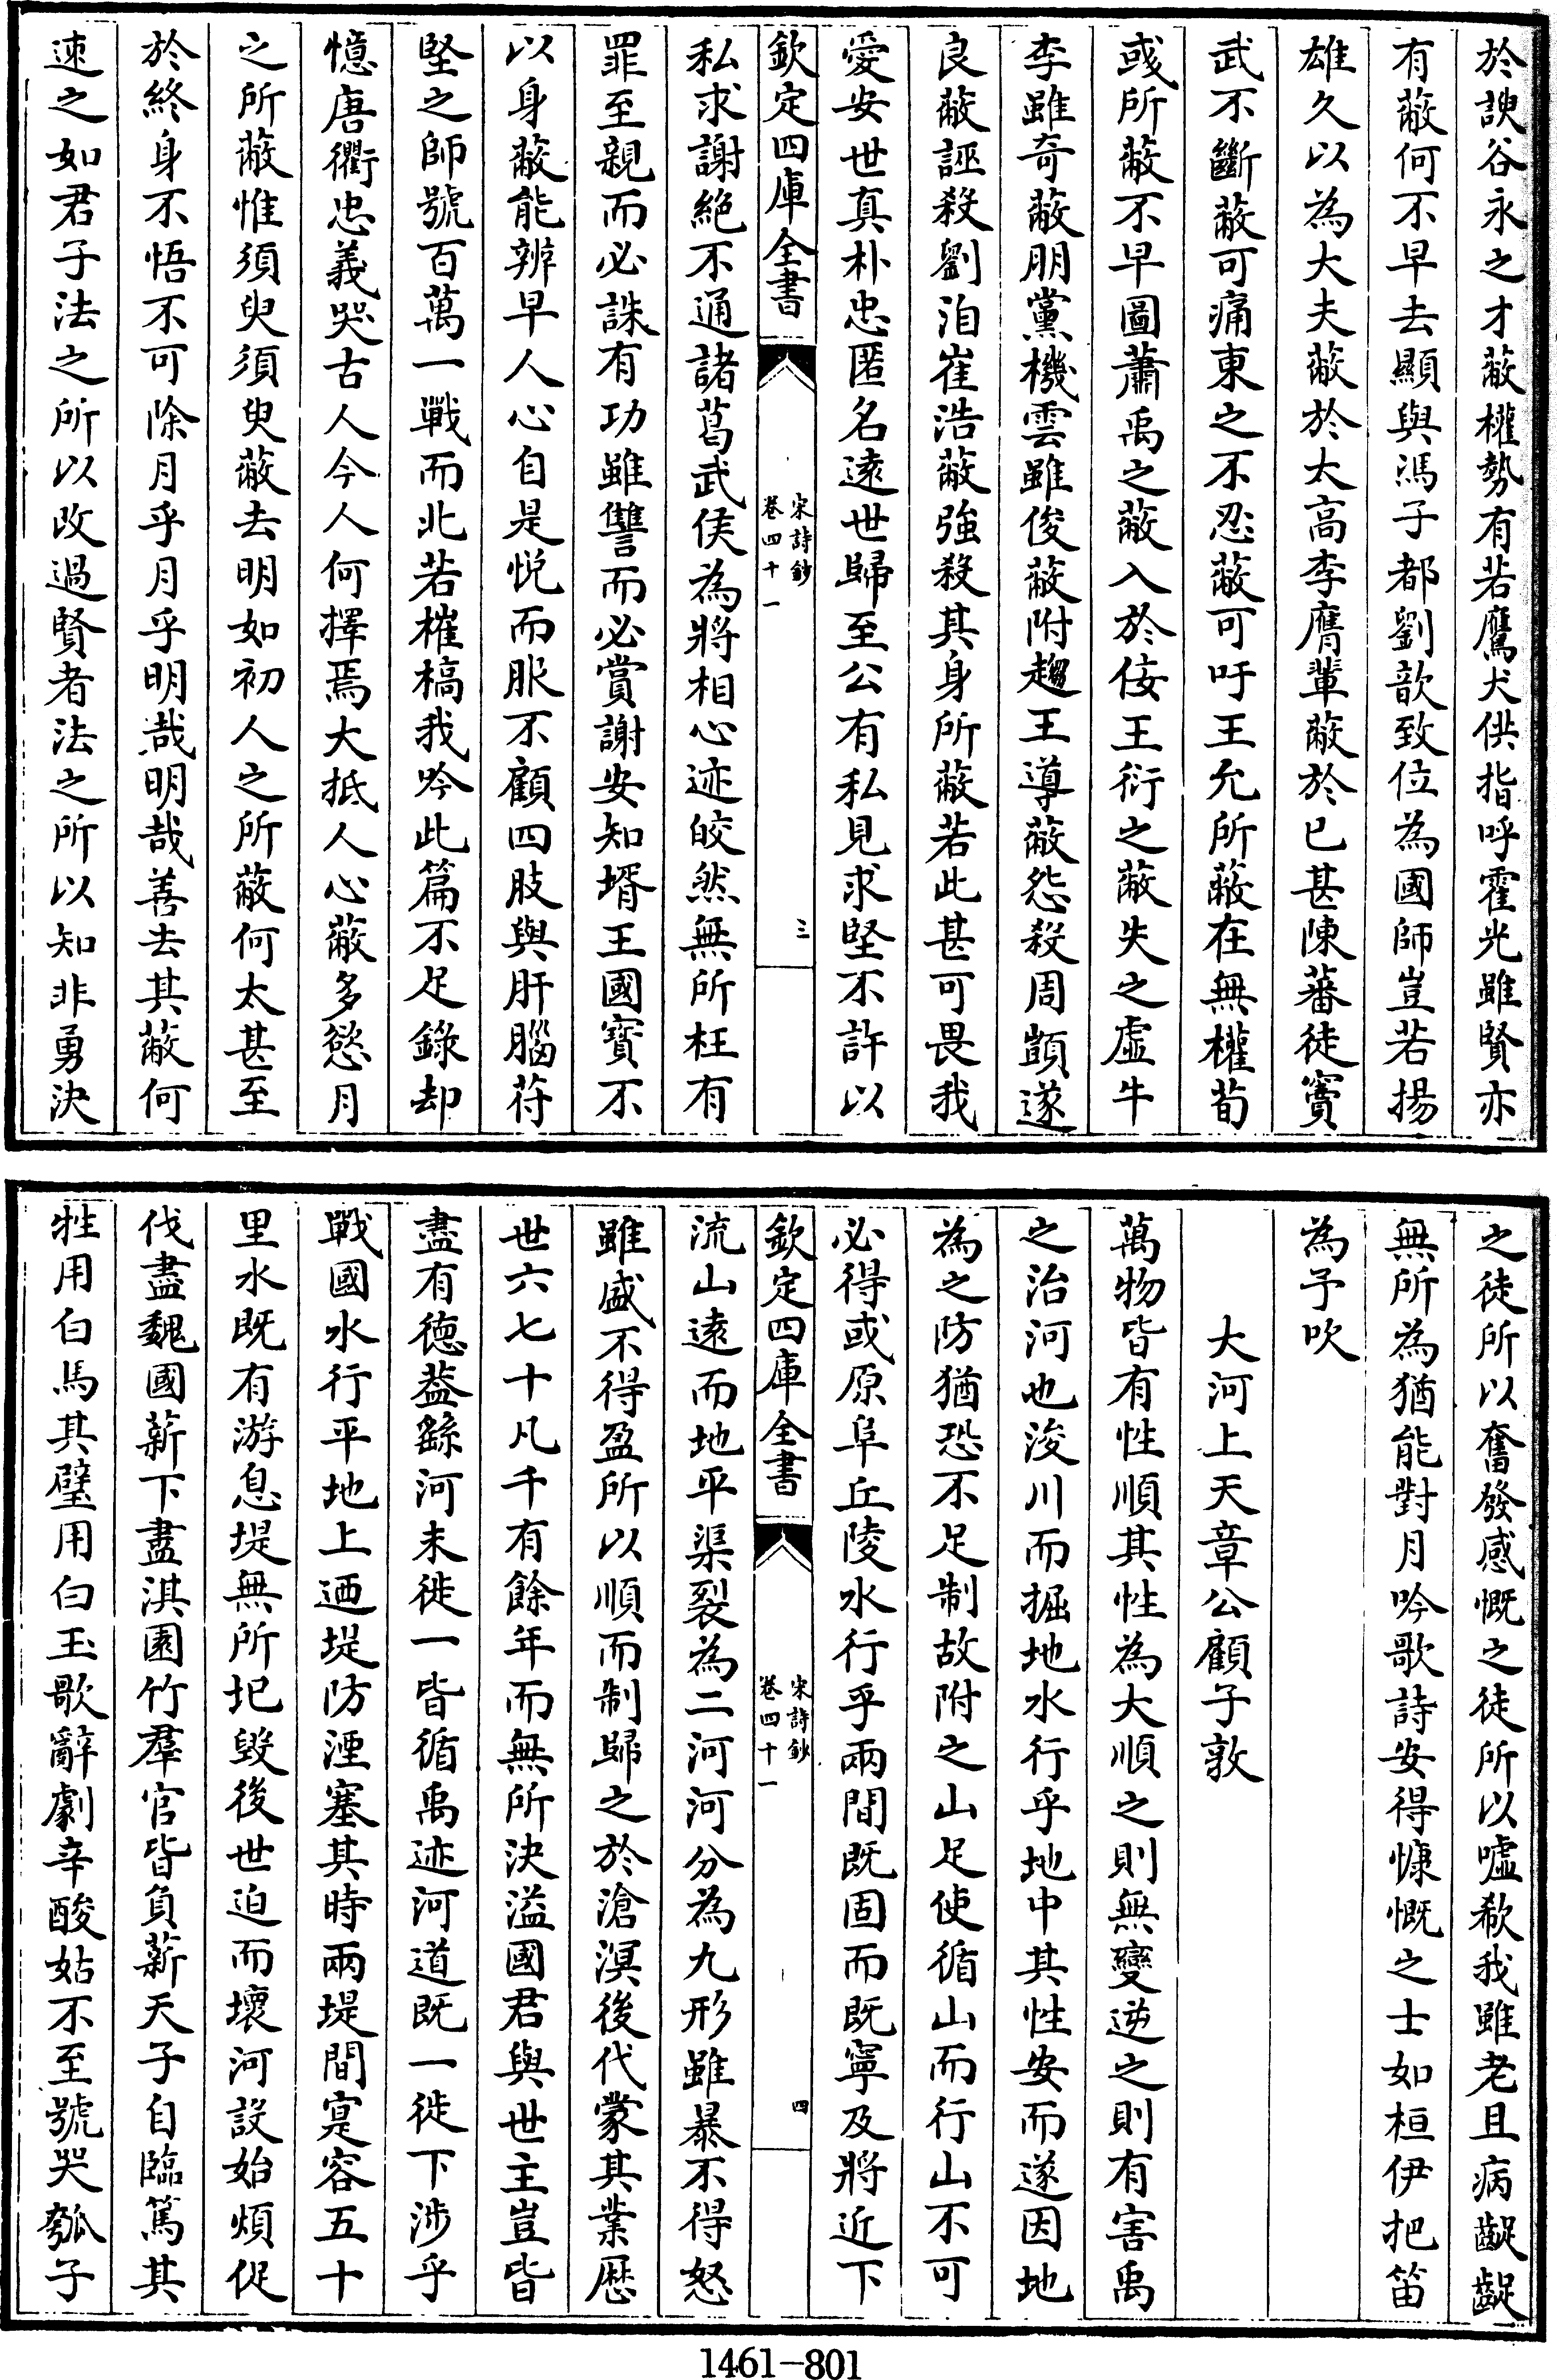 於諛谷永之才蔽權勢有若鷹犬供指呼霍光雖賢亦
有蔽何不早去顯與馮子都劉歆致位為國師豈若揚
雄久以為大夫蔽於太高李膺輩蔽於已甚陳蕃徒竇
武不斷蔽可痛東之不忍蔽可吁王允所蔽在無權荀
彧所蔽不早圖蕭禹之蔽入於佞王衍之蔽失之虛牛
李雖奇蔽朋黨機雲雖俊蔽附趨王導蔽怨殺周顗遂
良蔽誣殺劉洎崔浩蔽強殺其身所蔽若此甚可畏我
愛安世真朴忠匿名遠世歸至公有私見求堅不許以
欽定四庫全書
宋詩鈔
卷四十一
三
私求謝絶不通諸葛武侯為將相心迹皎然無所枉有
罪至親而必誅有功雖讐而必賞謝安知壻王國寳不
以身蔽能辨早人心自是悦而服不顧四肢與肝腦苻
堅之師號百萬一戰而北若摧槁我吟此篇不足錄却
憶唐衢忠義哭古人今人何擇焉大抵人心蔽多慾月
之所蔽惟須臾須臾蔽去明如初人之所蔽何太甚至
於終身不悟不可除月乎月乎明哉明哉善去其蔽何
速之如君子法之所以改過賢者法之所以知非勇決
之徒所以奮發感慨之徒所以噓欷我雖老且病齪齪
無所為猶能對月吟歌詩安得慷慨之士如桓伊把笛
為予吹
大河上天章公顧子敦
萬物皆有性順其性為大順之則無變逆之則有害禹
之治河也浚川而掘地水行乎地中其性安而遂因地
為之防猶恐不足制故附之山足使循山而行山不可
必得或原阜丘陵水行乎兩間既固而既寧及將近下
欽定四庫全書
宋詩鈔
卷四十一
四
流山遠而地平渠裂為二河河分為九形雖暴不得怒
雖盛不得盈所以順而制歸之於滄溟後代蒙其業厯
世六七十凡千有餘年而無所決溢國君與世主豈皆
盡有德葢繇河未徙一皆循禹迹河道既一徙下涉乎
戰國水行平地上迺堤防湮塞其時兩堤間寔容五十
里水既有游息堤無所圯毀後世迫而壞河設始煩促
伐盡魏國薪下盡淇園竹羣官皆負薪天子自臨篤其
牲用白馬其璧用白玉歌辭劇辛酸姑不至號哭瓠子
1461-801